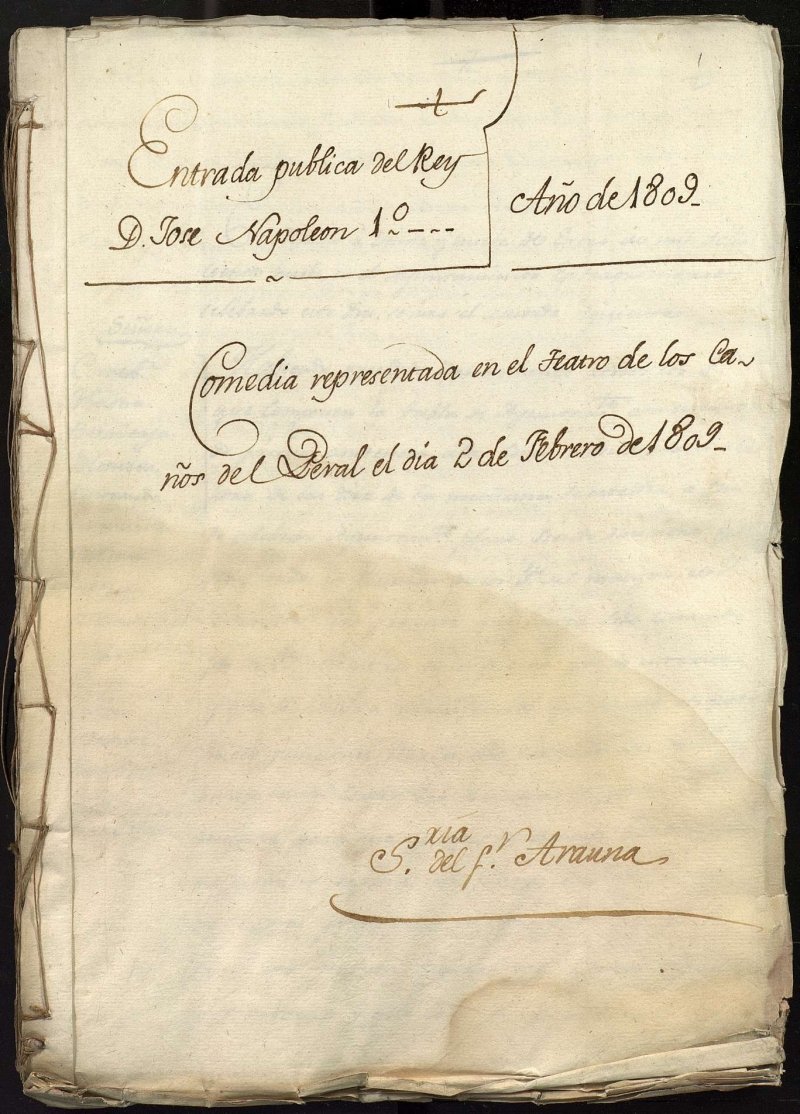 Entrada publica del Rey
D. Jose Napoleon 1º
Año de 1809
Comedia representada en el Teatro de los Ca-
ños del Peral el dia 2 de Febrero de 1809
S.ria del s.r Arauna